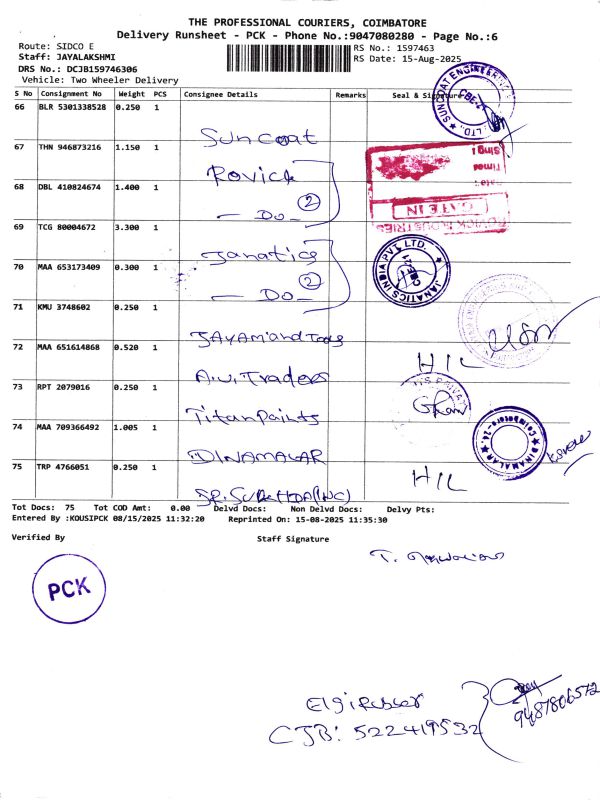 THE PROFESSIONAL COURIERS, COIMBATORE
Delivery Runsheet - PCK - Phone No.:9047080280 - Page No.:6
Route: SIDCO E
RS No.: 1597463
Staff: JAYALAKSHMI
RS Date: 15-Aug-2025
DRS No.: DCJB159746306
Vehicle: Two Wheeler Delivery
S No Consignment No Weight PCS Consignee Details Remarks Seal & Signature
66 BLR 5301338528 0.250 1
Suncoat
67 THN 946873216 1.150 1
Rovick
68 DBL 410824674 1.400 1
2
— Do —
69 TCG 80004672 3.300 1
Janatics
70 MAA 653173409 0.300 1
2
— Do —
71 KMU 3748602 0.250 1
JAYAM and Tools
72 MAA 651614868 0.520 1
HIL
A.V. Traders
73 RPT 2079016 0.250 1
Titan Paints
74 MAA 709366492 1.005 1
DINAMALAR
75 TRP 4766051 0.250 1
HIL
GATE IN
JANATICS INDIA PVT. LTD.
CBE-21
DINAMALAR
Coimbatore-24.
Tot Docs: 75 Tot COD Amt: 0.00 Delvd Docs: Non Delvd Docs: Delvy Pts:
Entered By :KOUSIPCK 08/15/2025 11:32:20 Reprinted On: 15-08-2025 11:35:30
Verified By Staff Signature
PCK
Elgi Rubber
CJB: 522419532
9487806572